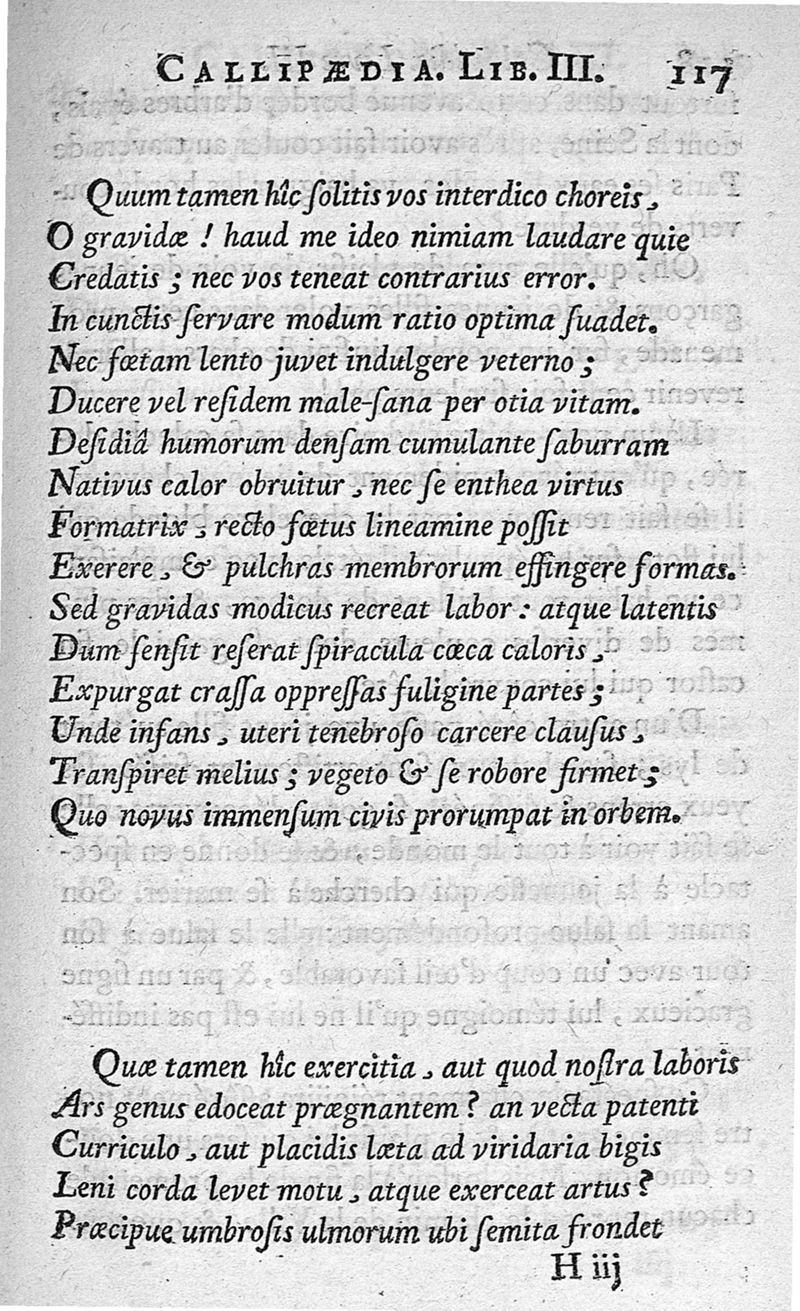 CALLIPÆDIA. LIB. III. 117
Quum tamen hîc ſolitis vos interdico choreis,
O gravidæ ! haud me ideo nimiam laudare quie
Credatis ; nec vos teneat contrarius error.
In cunctis ſervare modum ratio optima ſuadet.
Nec fœtam lento juvet indulgere veterno ;
Ducere vel reſidem male-ſana per otia vitam.
Deſidiâ humorum denſam cumulante ſaburram
Nativus calor obruitur, nec ſe enthea virtus
Formatrix, recto fœtus lineamine poſſit
Exerere, & pulchras membrorum effingere formas.
Sed gravidas modicus recreat labor : atque latentis
Dum ſenſit reſerat ſpiracula cæca caloris,
Expurgat craſſa oppreſſas fuligine partes ;
Unde infans, uteri tenebroſo carcere clauſus,
Tranſpiret melius ; vegeto & ſe robore firmet ;
Quo novus immenſum civis prorumpat in orbem.
Quæ tamen hîc exercitia, aut quod noſtra laboris
Ars genus edoceat prægnantem ? an vecta patenti
Curriculo, aut placidis læta ad viridaria bigis
Leni corda levet motu, atque exerceat artus ?
Præcipue umbroſis ulmorum ubi ſemita frondet
H iij